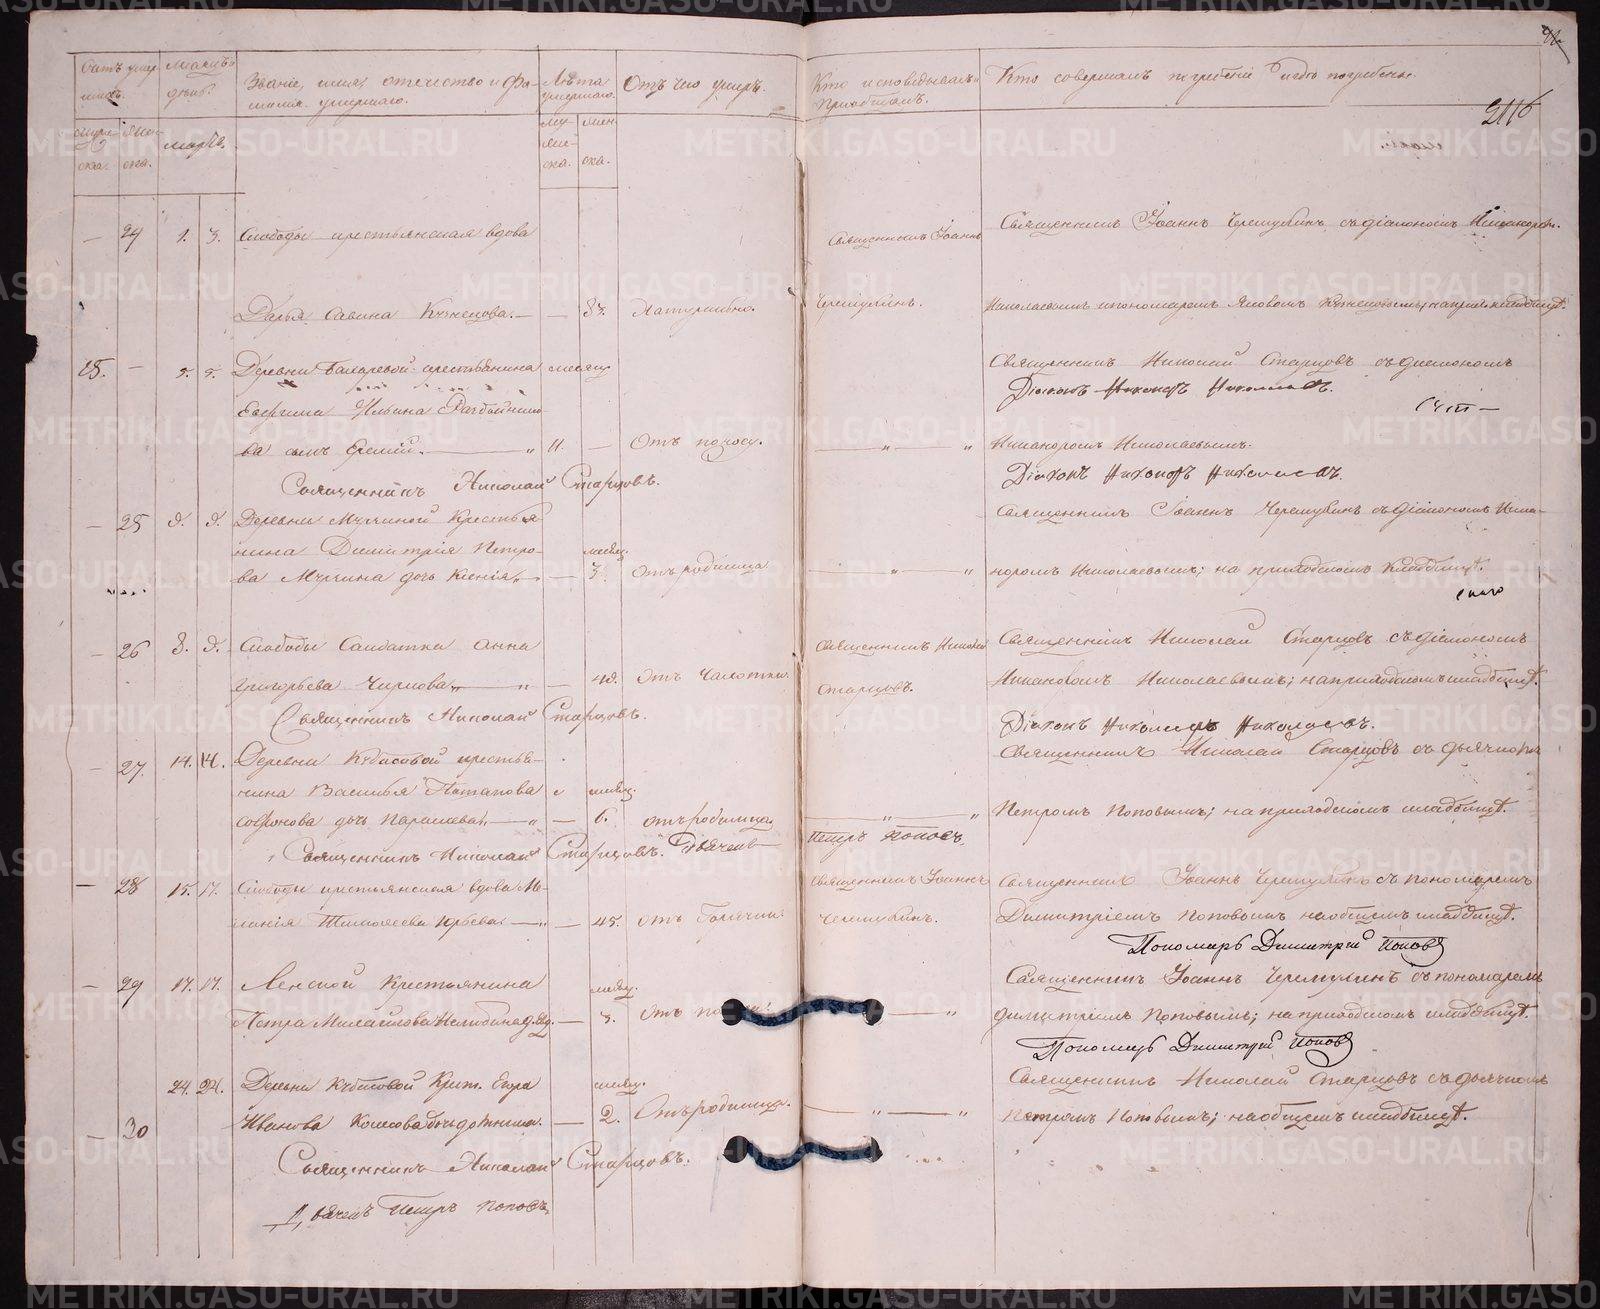 Счетъ умер-
шихъ.
Мѣсяцъ и
день.
Званіе, имя, отчество и фа-
милія умершаго.
Лѣта
умершаго.
Отъ чего умеръ.
Кто исповѣдывалъ и
пріобщалъ.
Кто совершалъ погребеніе и гдѣ погребены.
муже-
ска.
жен-
ска.
Марта.
му-
же-
ска.
жен-
ска.
2116
— 24 1. 3. Слободы крестьянская вдова
Священникъ Іоаннъ
Священникъ Іоаннъ Черемухинъ съ діакономъ Никаноромъ
Дарья Савина Кузнецова. — — 83. Натурально.
Черемухинъ.
Николаевымъ и пономаремъ Яковомъ Кузнецовымъ; на прих. кладбищѣ.
— 5. 5. Деревни крестьянина месяц
Священникъ Николай Старцовъ съ діакономъ
Діаконъ Никаноръ Николаевъ.
Евфима Ильина
ва сынъ Еремій. — 11. — Отъ поносу.
Никаноромъ Николаевымъ.
Священникъ Николай Старцовъ.
Діаконъ Никаноръ Николаевъ.
— 25 Деревни Крестья-
Священникъ Іоаннъ Черемухинъ съ діакономъ Ника-
нина Димитрія Петро-
месяц.
ва дочь Ксенія. — 3. Отъ родимца
норомъ Николаевымъ; на приходскомъ кладбищѣ.
— 26 8. Слободы Солдатка Анна
Священникъ Николай
Священникъ Николай Старцовъ съ діакономъ
Григорьева — Отъ Чахотки.
Старцовъ.
Никаноромъ Николаевымъ; на приходскомъ кладбищѣ.
Священникъ Николай Старцовъ.
Діаконъ Никаноръ Николаевъ.
— 27. 14. 14. Деревни Кубасовой крестья-
Священникъ Николай Старцовъ съ дьячкомъ
нина Василья Потапова месяц.
Петромъ Поповымъ; на приходскомъ кладбищѣ.
Софонова дочь Параскева. — 6. отъ родимца.
Священникъ Николай Старцовъ. Дьячекъ
Петръ Поповъ.
— 28 15. 17. Слободы крестьянская вдова Ме-
Священникъ Іоаннъ
Священникъ Іоаннъ Черемухинъ съ пономаремъ
ланія Тимофеева Юрьева. — 45. отъ Горячки.
Черемухинъ.
Димитріемъ Поповымъ на общемъ кладбищѣ.
Пономарь Димитрій Поповъ
— 29 17. 17. Ленской Крестьянина
месяц.
Священникъ Іоаннъ Черемухинъ съ пономаремъ
Петра Михайлова — 3. Отъ
Димитріемъ Поповымъ; на приходскомъ кладбищѣ.
Пономарь Димитрій Поповъ
22. 24. Деревни Кубасовой Крест. Егора
месяц.
Священникъ Николай Старцовъ съ дьячкомъ
— 30 Иванова дочь — 2. Отъ родимца.
Петромъ Поповымъ; на общемъ кладбищѣ.
Священникъ Николай Старцовъ.
Дьячекъ Петръ Поповъ
METRIKI.GASO-URAL.RU